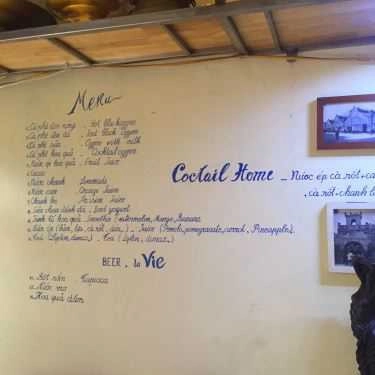 Menu
Cà phê đen nóng . Hot blu koppee
Cà phê đen đá . Iced Black Coffee
Cà phê sữa . Coffee with milk
Cà phê hoa quả . Cocktail coffee
Nước ép hoa quả . Fruit Juice
Cacao
Nước chanh Lemonade
Nước cam Orange Juice
Chanh leo Passion Juice
Sữa chua đánh đá . Iced yogurt
Sinh tố hoa quả . Smoothie (watermelon, Mango, Banana
Nước ép (bưởi, lựu, cà rốt, dứa,) . Juice (Pomelo, pomegranate, carrot, Pineapples).
Trà (Lipton, dilmas,) . Tea (Lipton, dimas,)
BEER . la Vie
Bột sắn . Tapioca
Nước mơ
Hoa quả dầm
Coctail Home _ Nước ép cà rốt+ca
cà rốt+chanh l